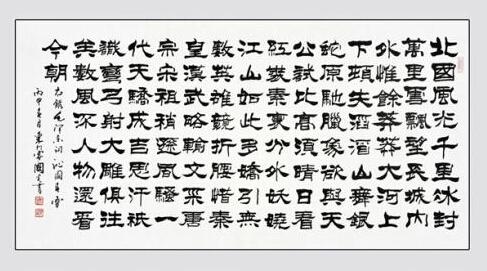 北國風光千里冰封
萬里雪飄望長城內
外惟餘莽莽大河上
下頓失滔滔山舞銀
蛇原馳臘象欲與天
公試比高須晴日看
紅裝素裹分外妖嬈
江山如此多嬌引無
數英雄競折腰惜秦
皇漢武略輸文采唐
宗宋祖稍遜風騷一
代天驕成吉思汗祇
識彎弓射大雕俱往
矣數風流人物還看
今朝
右錄毛澤東詞沁園春雪
丙申月國書